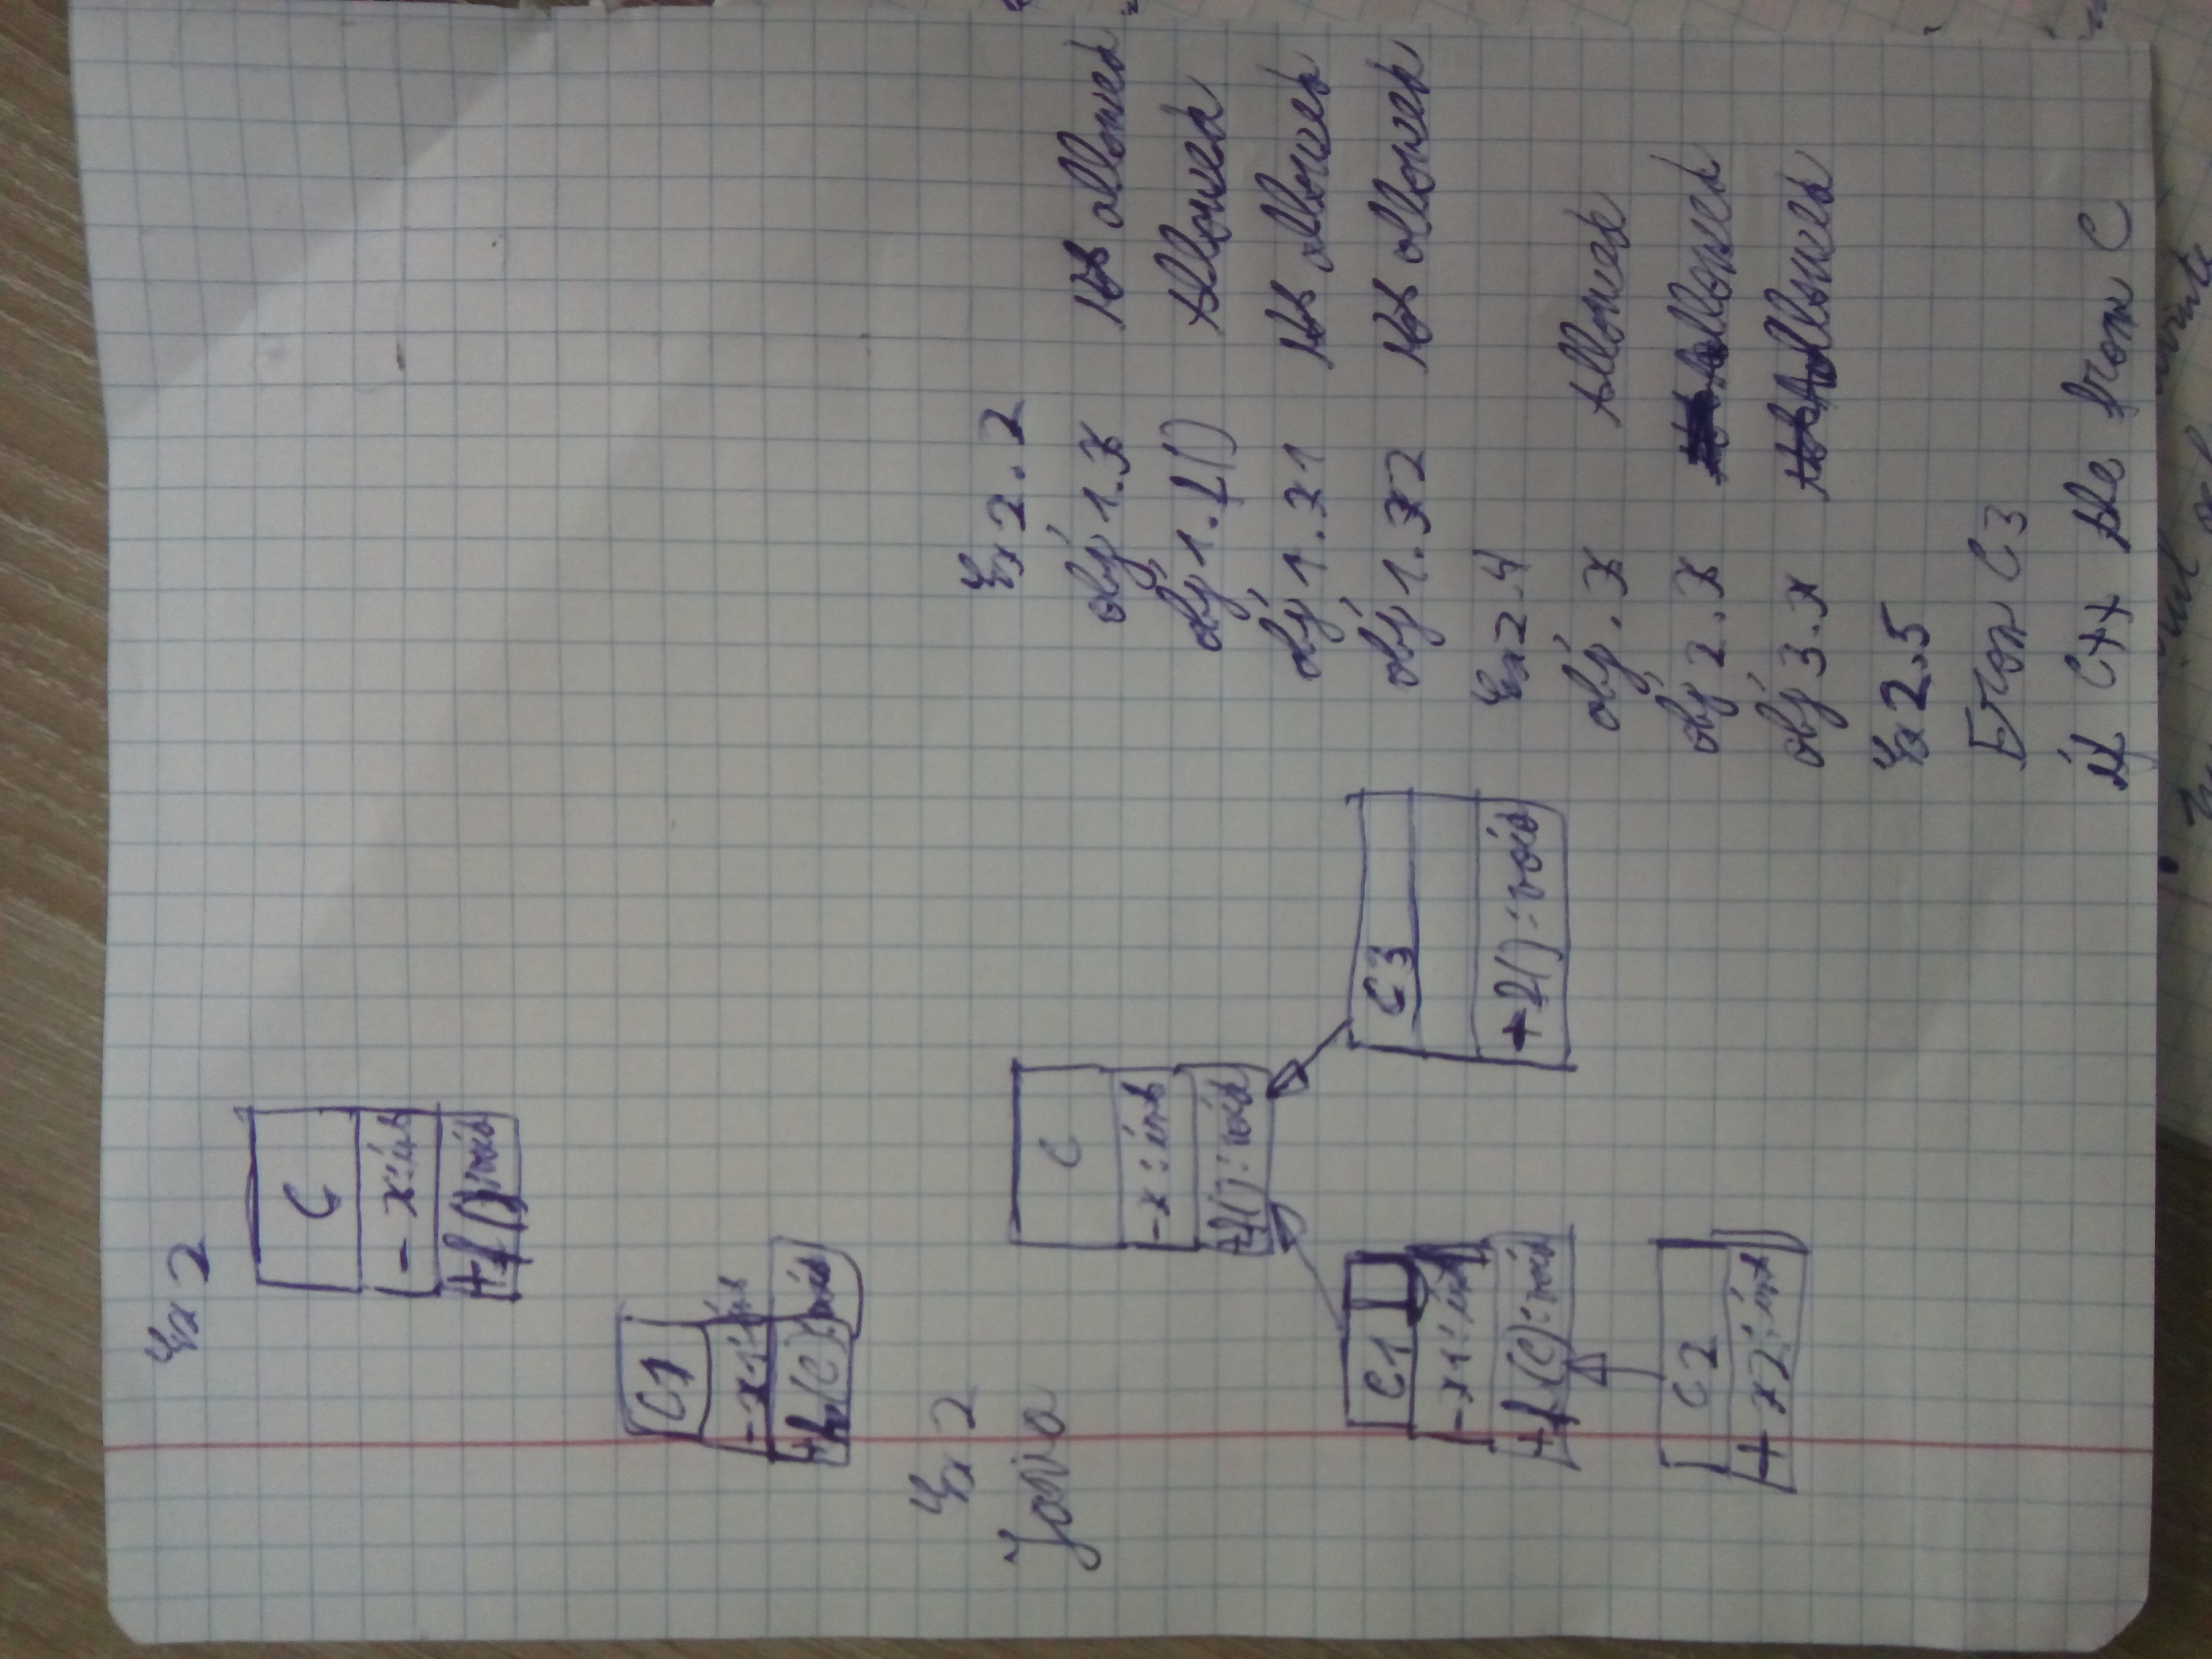 Ex 2
C
- x: int
+ f() void
C1
- x1: int
+ f(C): void
Ex 2
Java
C
- x: int
+ f(): void
C1
- x1: int
+ f(C): void
C2
+ x2: int
C3
+ f(): void
Ex 2.2
obj 1.x Not allowed
obj 1.f() Allowed
obj 1.x1 Not allowed
obj 1.x2 Not allowed
Ex 2.4
obj.x Allowed
obj 2.x Allowed
obj 3.x Allowed
Ex 2.5
From C3
if C++ the from C